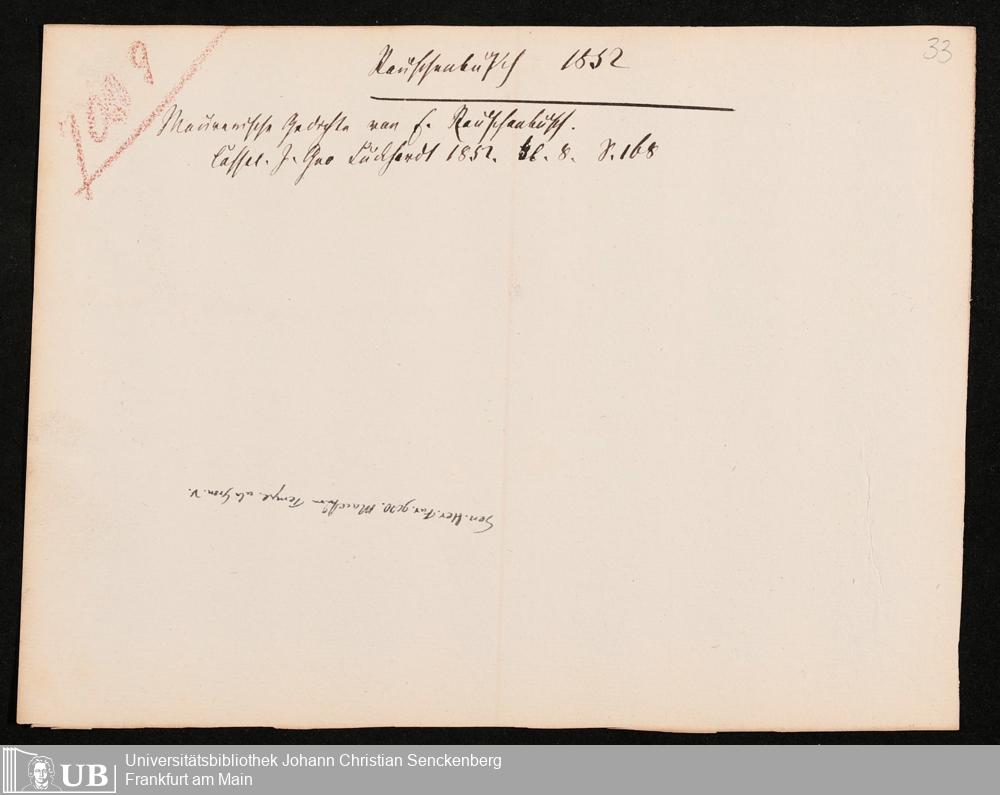 33
Rauschenbusch 1852
Maurerische Gedichte von E. Rauschenbusch.
Cassel. J. Geo Luckhardt 1852. kl. 8. S. 168
UB
Universitätsbibliothek Johann Christian Senckenberg
Frankfurt am Main